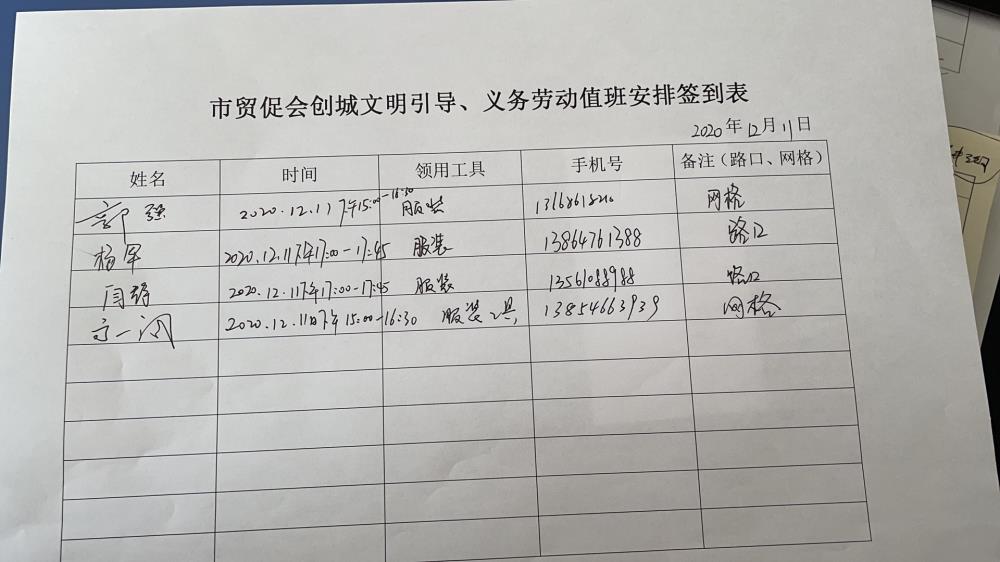 市贸促会创城文明引导、义务劳动值班安排签到表
2020年12月11日
姓名 时间 领用工具 手机号 备注（路口、网格）
郭强 2020.12.11下午15:00-16:30 服装 网格
杨军 2020.12.11下午17:00-17:45 服装 13864761388 路口
闫静 2020.12.11下午17:00-17:45 服装 13561088988 路口
2020.12.11日下午15:00-16:30 服装工具 13854663939 网格